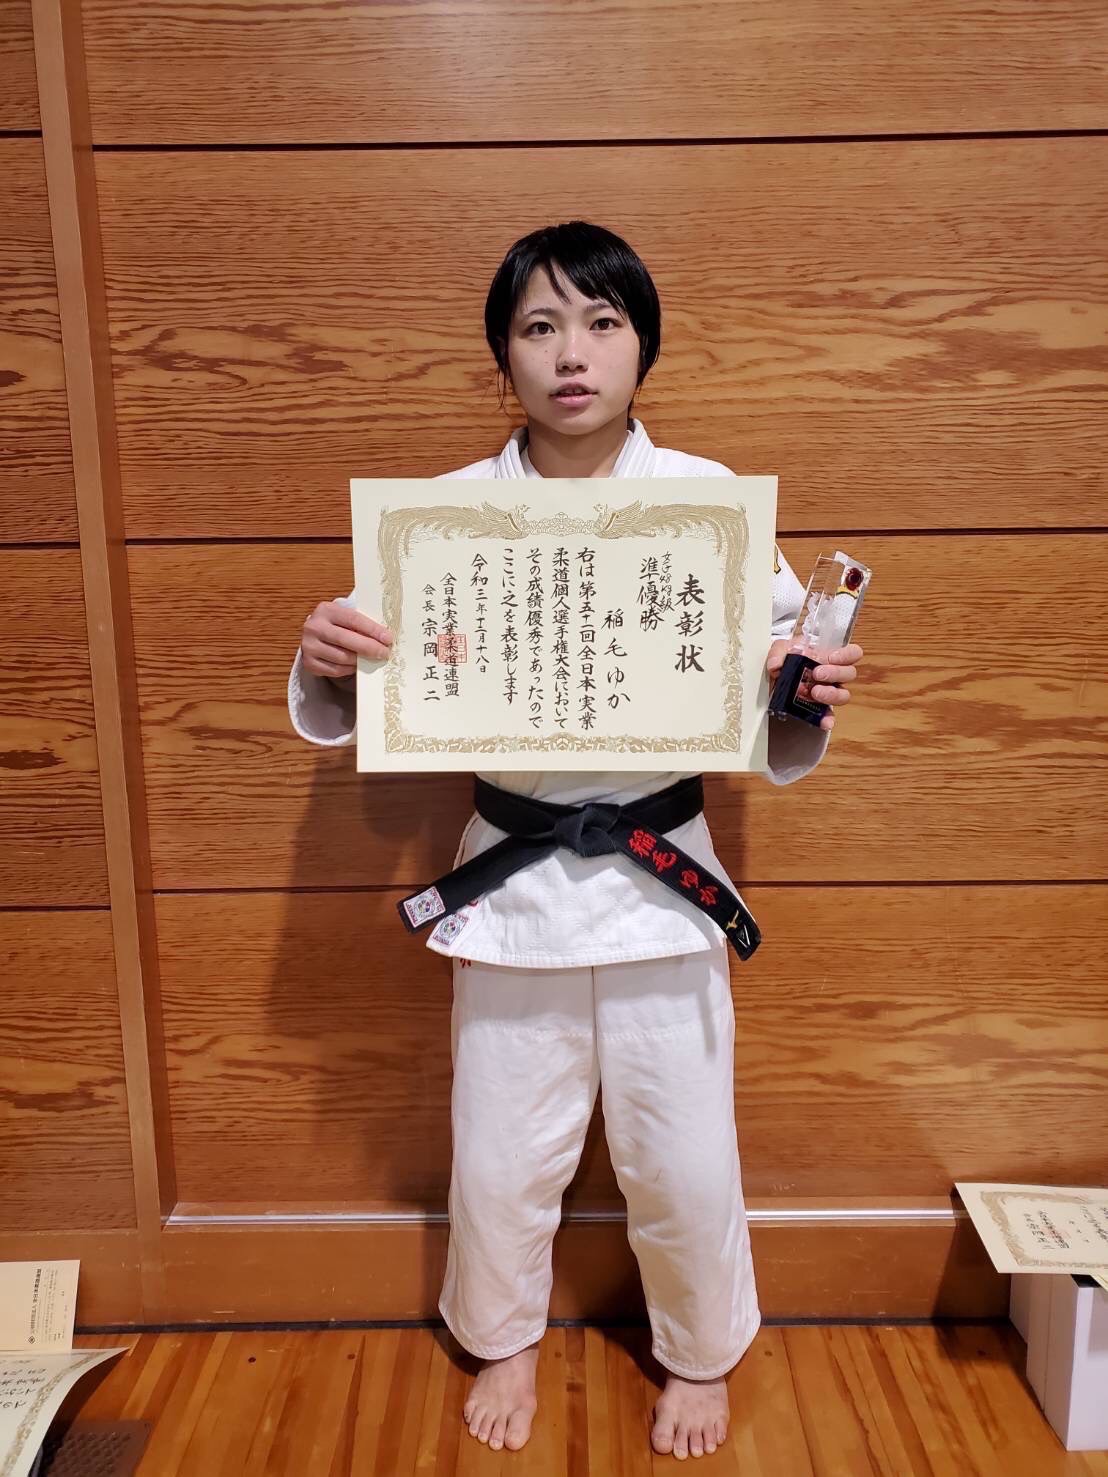 表彰状
女子48kg級
準優勝
稲毛ゆか
右は第五十一回全日本実業
柔道個人選手権大会において
その成績優秀であったので
ここに之を表彰します
令和三年十二月十八日
全日本実業柔道連盟
会長 宗岡正二
稲毛ゆか